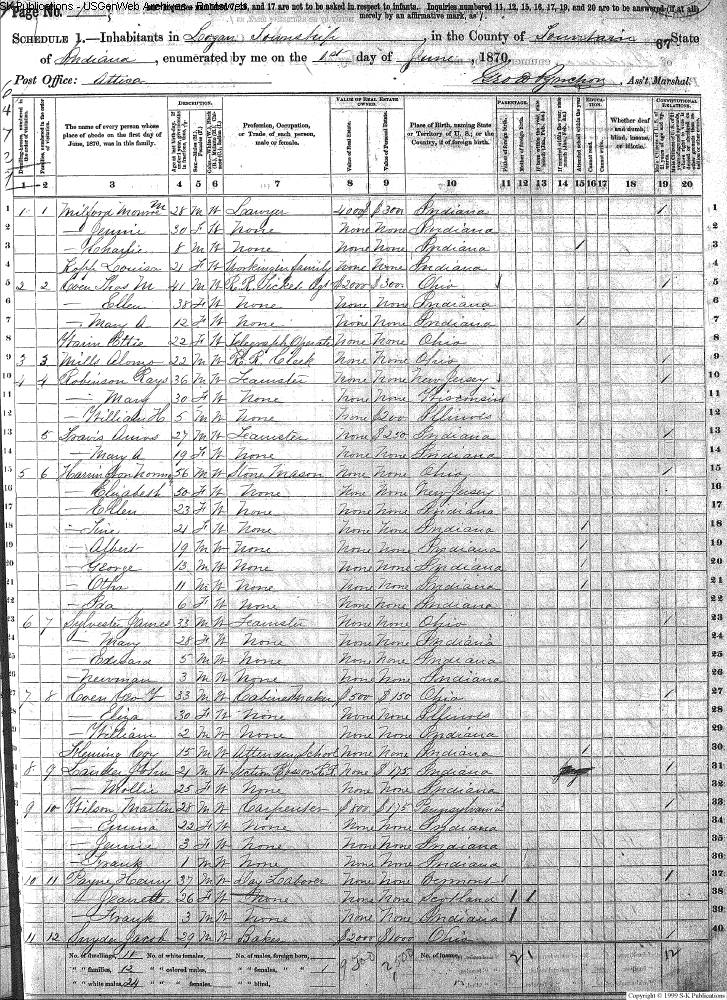 SK Publications - USGenWeb Archives - Census
Page No. 1
Inquiries numbered 7, 16, and 17 are not to be asked in respect to infants. Inquiries numbered 11, 12, 15, 16, 17, 19, and 20 are to be answered (if at all)
merely by an affirmative mark, as /.
SCHEDULE 1.—Inhabitants in Logan Township, in the County of Fountain, State
67
of Indiana, enumerated by me on the 1st day of June, 1870.
Post Office: Attica
Ass't Marshal.
DESCRIPTION. VALUE OF REAL ESTATE OWNED. PARENTAGE. EDUCATION. CONSTITUTIONAL RELATIONS.
The name of every person whose place of abode on the first day of June, 1870, was in this family.
Profession, Occupation, or Trade of each person, male or female.
Value of Real Estate.
Place of Birth, naming State or Territory of U. S.; or the Country, if of foreign birth.
Whether deaf and dumb, blind, insane, or idiotic.
1 2 3 4 5 6 7 8 9 10 11 12 13 14 15 16 17 18 19 20
1 1 1 Milford Monroe M 28 M W Lawyer 4000 $300 Indiana / 1
2 — Jennie 30 F W None None None Indiana 2
3 — Charlie 8 M W None None None Indiana / 3
4 Kopp Louisa 21 F W Working in family None None Indiana 4
5 2 2 Coen Thos M 41 M W R.R. Ticket Agt $2000 $300 Ohio / 5
6 — Ellen 38 F W None None None Indiana 6
7 — Mary A 12 F W None None None Indiana / 7
8 22 F W Telegraph Operator None None Ohio 8
9 3 3 Mills Alonzo 22 M W R.R. Clerk None None Ohio / 9
10 4 4 Robinson Rays 36 M W Teamster None None New Jersey / 10
11 — Mary 30 F W None None None Wisconsin 11
12 — William H. 5 M W None None $200 Illinois 12
13 5 Travis Amos 27 M W Teamster None $250 Indiana / 13
14 — Mary A 19 F W None None None Indiana 14
15 5 6 56 M W Stone Mason None None Ohio / 15
16 — Elizabeth 50 F W None None None New Jersey 16
17 — Ellen 23 F W None None None Indiana 17
18 — 21 F W None None None Indiana / 18
19 — Albert 19 M W None None None Indiana / 19
20 — George 13 M W None None None Indiana / 20
21 — Otha 11 M W None None None Indiana / 21
22 — Ida 6 F W None None None Indiana 22
23 6 7 Sylvester James 33 M W Teamster None None Ohio / 23
24 — Mary 28 F W None None None Indiana 24
25 — Edward 5 M W None None None Indiana 25
26 — Newman 3 M W None None None Indiana 26
27 7 8 Coen Geo T 33 M W Cabinet Maker $500 $150 Ohio / 27
28 — Eliza 30 F W None None None Illinois 28
29 — William 2 M W None None None Indiana 29
30 Fleming 15 M W Attending School None None Indiana / 30
31 8 9 Lander John 21 M W None $175 Indiana / 31
32 — Mollie 25 F W None None None Indiana 32
33 9 10 Wilson Martin 28 M W Carpenter $800 $175 Pennsylvania / 33
34 — Emma 22 F W None None None Indiana 34
35 — Jennie 3 F W None None None Indiana 35
36 — Frank 1 M W None None None Indiana 36
37 10 11 Payne Henry 37 M W Day Laborer None None Vermont / 37
38 — Jeanette 26 F W None None None Scotland / / 38
39 — Frank 3 M W None None None Indiana / 39
40 11 12 Snyder Jacob 29 M W Baker $2000 $1000 Ohio / 40
No. of dwellings, 11 No. of white females, No. of males, foreign born, No. of insane, 2 1 12
" " families, 12 " " colored males, " " females, " " 1
" " white males, 24 " " " females, " " blind,
Copyright © 1999 S-K Publications